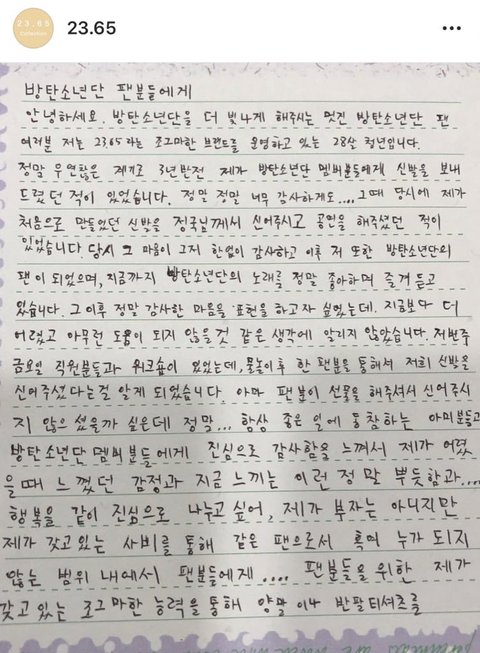 23.65
23.65
Collection
방탄소년단 팬분들에게
안녕하세요. 방탄소년단을 더 빛나게 해주시는 멋진 방탄소년단 팬
여러분 저는 23.65 라는 조그마한 브랜드를 운영하고 있는 28살 청년입니다.
정말 우연찮은 계기로 3년반전 제가 방탄소년단 멤버분들에게 신발을 보내
드렸던 적이 있었습니다. 정말 정말 너무 감사하게도.... 그때 당시에 제가
처음으로 만들었던 신발을 정국님께서 신어주시고 공연을 해주셨던 적이
있었습니다. 당시 그 마음이 그저 한없이 감사하고 이후 저 또한 방탄소년단의
팬이 되었으며, 지금까지 방탄소년단의 노래를 정말 좋아하며 즐겨 듣고
있습니다. 그 이후 정말 감사한 마음을 표현을 하고자 싶었는데. 지금보다 더
어렸고 아무런 도움이 되지 않을것 같은 생각에 알리지 않았습니다. 저번주
금요일 직원분들과 워크숍이 있었는데, 물놀이후 한 팬분을 통해서 저희 신발을
신어주셨다는걸 알게 되었습니다. 아마 팬분이 선물을 해주셔서 신어주시
지 않으셨을까 싶은데 정말... 항상 좋은 일에 동참하는 아미분들과
방탄소년단 멤버분들에게 진심으로 감사함을 느껴서 제가 어렸
을때 느꼈던 감정과 지금 느끼는 이런 정말 뿌듯함과....
행복을 같이 진심으로 나누고 싶어, 제가 부자는 아니지만
제가 갖고있는 사비를 통해 같은 팬으로서 혹여 누가 되지
않는 범위 내에서 팬분들에게 .... 팬분들을 위한 제가
갖고있는 조그마한 능력을 통해 양말이나 반팔티셔츠를